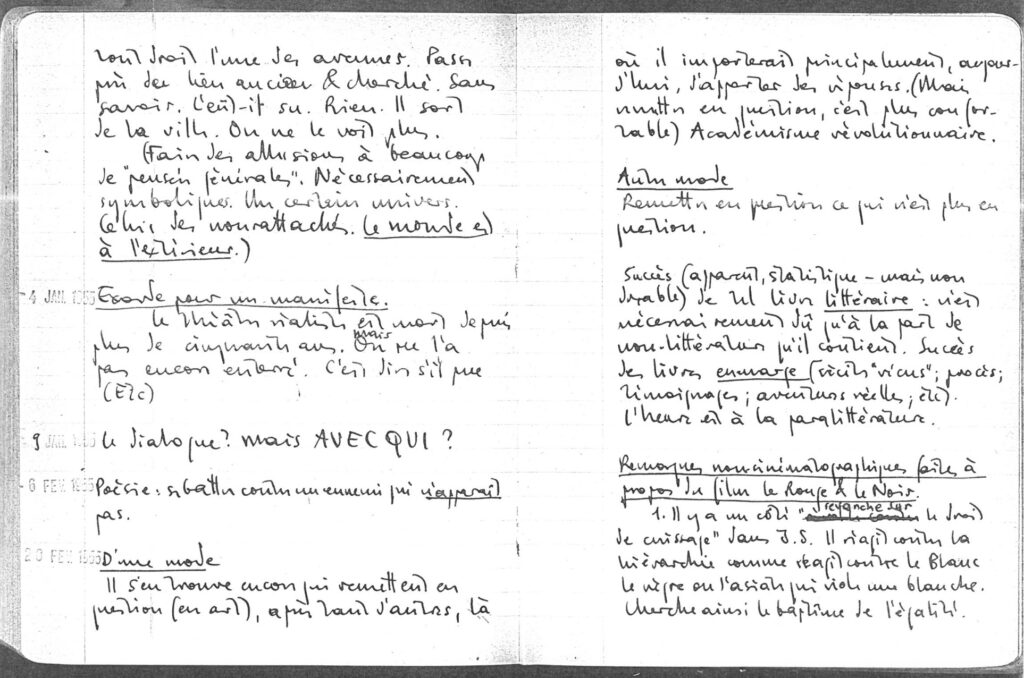 tout droit l'une des avenues. Passe
près du lieu ancien & cherché. Sans
savoir. L'eût-il su. Rien. Il sort
de la ville. On ne le voit plus.
(Faire des allusions à beaucoup
de "pensées générales". Nécessairement
symboliques. Un certain univers.
Celui des nonrattachés. Le monde est
à l'extérieur.)
4 JAN. 1955
Exorde pour un manifeste.
Le théâtre réaliste est mort depuis
plus de cinquante ans. mais On ne l'a
pas encore enterré. C'est dire s'il pue
(Etc)
9 JAN. 1955
Le dialogue? mais AVEC QUI ?
6 FEV. 1955
Poésie : se battre contre un ennemi qui n'apparaît
pas.
20 FEV. 1955
D'une mode
Il s'en trouve encore qui remettent en
question (en art), après tant d'autres, là
où il importerait principalement, aujour-
d'hui, d'apporter des réponses. (Mais
mettre en question, c'est plus confor-
table) Académisme révolutionnaire.
Autre mode
Remettre en question ce qui n'est plus en
question.
Succès (apparent, statistique – mais non
durable) de tel livre littéraire : n'est
nécessairement dû qu'à la part de
non-littérature qu'il contient. Succès
des livres en marge (récits "vécus" ; procès ;
témoignages ; aventures réelles ; etc).
L'heure est à la paralittérature.
Remarques noncinématographiques faites à
propos du film le Rouge & le Noir.
1. Il y a un côté "revanche sur le droit
de cuissage" dans J.S. Il réagit contre la
hiérarchie comme réagit contre le Blanc
le nègre ou l'asiate qui viole une blanche.
Cherche ainsi le baptême de l'égalité.